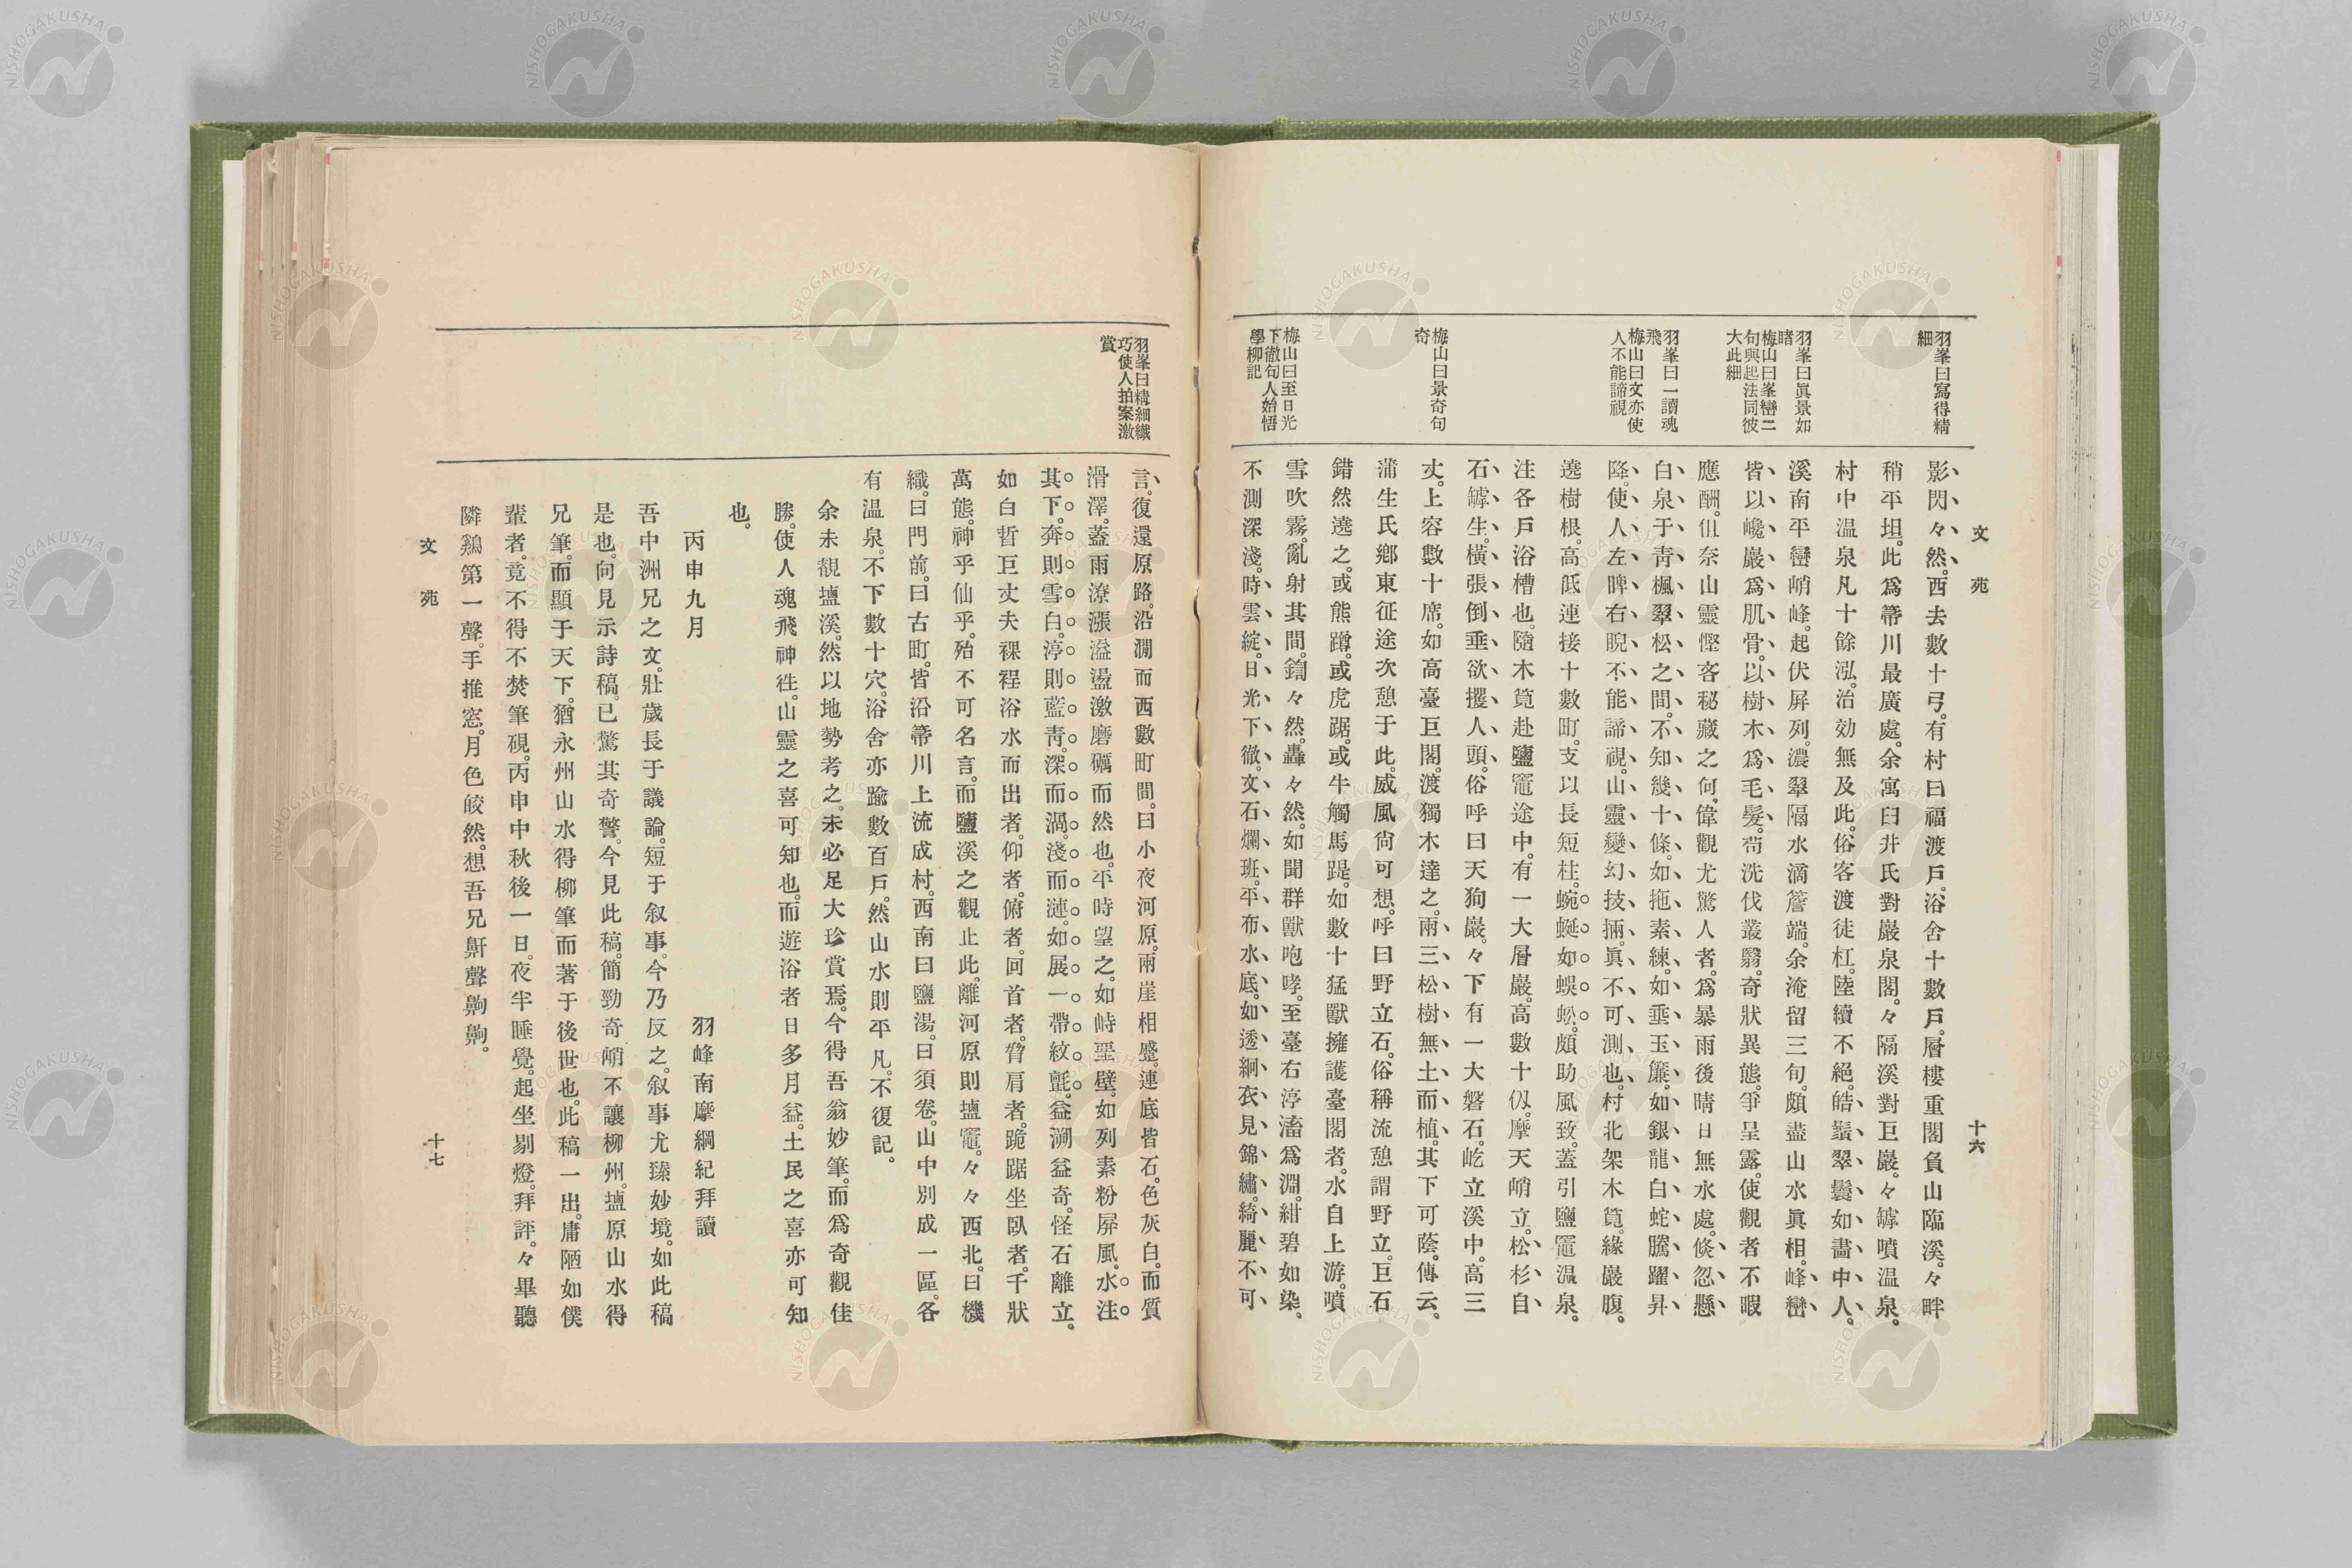 文苑
十六
羽峯曰寫得精
細
羽峯曰眞景如
睹
梅山曰峯巒二
句與起法同彼
大此細
羽峯曰一讀魂
飛
梅山曰文亦使
人不能諦視
梅山曰景奇句
奇
梅山曰至日光
下徹句人始悟
學柳記
影閃々然。西去數十弓。有村曰福渡戶。浴舍十數戶。層樓重閣負山臨溪。々畔
稍平坦。此爲箒川最廣處。余寓臼井氏對巖泉閣。々隔溪對巨巖。々罅噴温泉。
村中温泉凡十餘泓。治効無及此。俗客渡徒杠。陸續不絕。皓鬚翠鬟如畵中人。
溪南平巒峭峰。起伏屏列。濃翠隔水滴簷端。余淹留三旬。頗盡山水眞相。峰巒
皆以巉巖爲肌骨。以樹木爲毛髮。苟洗伐叢翳。奇狀異態。爭呈露。使觀者不暇
應酬。但奈山靈慳客秘藏之何。偉觀尤驚人者。爲暴雨後晴日無水處。倐忽懸
白泉于靑楓翠松之間。不知幾十條。如拖素練。如垂玉簾。如銀龍白蛇騰躍昇
降。使人左睥右睨不能諦視。山靈變幻技倆。眞不可測也。村北架木筧。緣巖腹。
遶樹根。高低連接十數町。支以長短柱。蜿蜒如蜈蚣。頗助風致。蓋引鹽竈温泉。
注各戶浴槽也。隨木筧赴鹽竈途中。有一大層巖。高數十仭。摩天峭立。松杉自
石罅生。橫張倒垂欲攫人頭。俗呼曰天狗巖。々下有一大磐石。屹立溪中。高三
丈。上容數十席。如高臺巨閣。渡獨木達之。兩三松樹無土而植。其下可蔭。傳云。
蒲生氏鄉東征途次憩于此。威風尙可想。呼曰野立石。俗稱流憩謂野立。巨石
錯然遶之。或熊蹲。或虎踞。或牛觸馬踶。如數十猛獸擁護臺閣者。水自上游。噴
雪吹霧。亂射其間。鏥々然。轟々然。如聞群獸咆哮。至臺右渟滀爲淵。紺碧如染。
不測深淺。時雲綻。日光下徹。文石爛班。平布水底。如透綱衣見錦繡。綺麗不可
羽峯曰精細纎
巧使人拍案激
賞
言。復還原路。沿澗而西數町間。曰小夜河原。兩崖相蹙。連底皆石。色灰白。而質
滑澤。蓋雨潦漲溢盪激磨礪而然也。平時望之。如峙堊壁。如列素粉屏風。水注
其下。奔則雪白。渟則藍靑。深而渦。淺而漣。如展一帶紋氈。益溯益奇。怪石離立。
如白晢巨丈夫裸裎浴水而出者。仰者。俯者。回首者。脅肩者。跪踞坐臥者。千狀
萬態。神乎仙乎。殆不可名言。而鹽溪之觀止此。離河原則塩竈。々々西北。曰機
織。曰門前。曰古町。皆沿箒川上流成村。西南曰鹽湯。曰須卷。山中別成一區。各
有温泉。不下數十穴。浴舍亦踰數百戶。然山水則平凡。不復記。
余未覩塩溪。然以地勢考之。未必足大珍賞焉。今得吾翁妙筆。而爲奇觀佳
勝。使人魂飛神徃。山靈之喜可知也。而遊浴者日多月益。土民之喜亦可知
也。
丙申九月
羽峰南摩綱紀拜讀
吾中洲兄之文。壯歲長于議論。短于叙事。今乃反之。叙事尤臻妙境。如此稿
是也。向見示詩稿。已驚其奇警。今見此稿。簡勁奇峭不讓柳州。塩原山水得
兄筆。而顯于天下。猶永州山水得柳筆而著于後世也。此稿一出。庸陋如僕
輩者。竟不得不焚筆硯。丙申中秋後一日。夜半睡覺。起坐剔燈。拜評。々畢聽
隣鷄第一聲。手推窓。月色皎然。想吾兄鼾聲齁齁。
文苑
十七